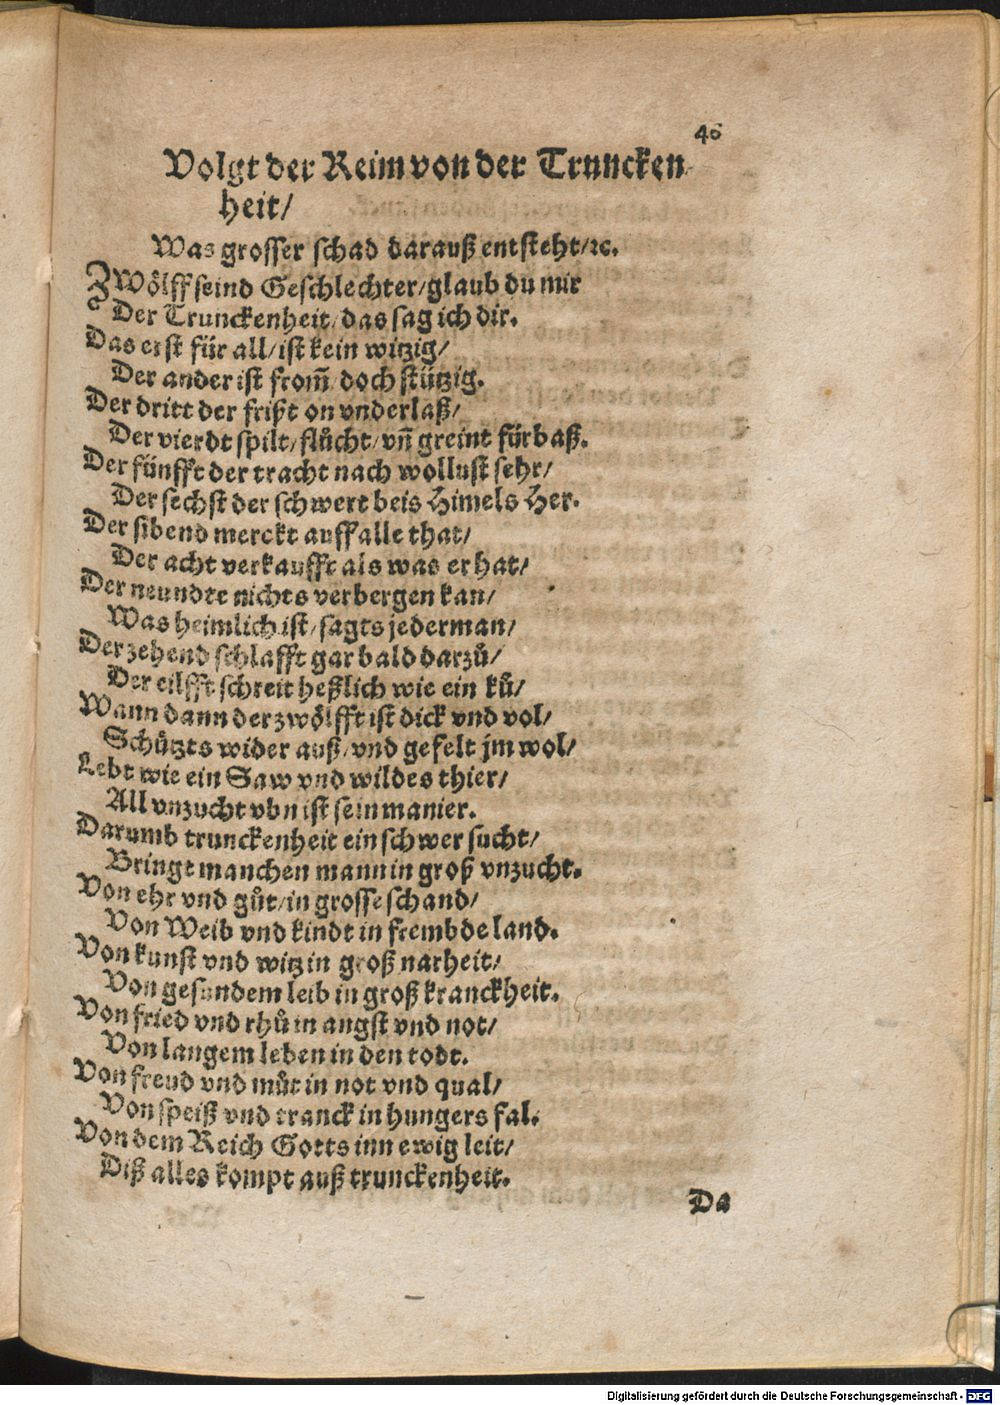 46
Volgt der Reim von der Truncken
heit/
Was grosser schad darauß entsteht/ꝛc.
ZWoͤlff seind Geschlechter/glaub du mir
Der Trunckenheit/das sag ich dir.
Das erst für all/ist kein witzig/
Der ander ist from̃/doch stützig.
Der dritt der frißt on vnderlaß/
Der vierdt spilt/fluͦcht/vñ greint fürbaß.
Der fünfft der tracht nach wollust sehr/
Der sechst der schwert beis Himels Her.
Der sibend merckt auff alle that/
Der acht verkaufft als was er hat/
Der neundte nichts verbergen kan/
Was heimlich ist/sagts jederman/
Der zehend schlafft gar bald darzuͦ/
Der eilfft schreit heßlich wie ein kuͦ/
Wann dann der zwoͤlfft ist dick vnd vol/
Schützts wider auß/vnd gefelt jm wol/
Lebt wie ein Saw vnd wildes thier/
All vnzucht vbn ist sein manier.
Darumb trunckenheit ein schwer sucht/
Bringt manchen mann in groß vnzucht.
Von ehr vnd guͦt/in grosse schand/
Von Weib vnd kindt in frembde land.
Von kunst vnd witz in groß narheit/
Von gesundem leib in groß kranckheit.
Von fried vnd rhuͦ in angst vnd not/
Von langem leben in den todt.
Von freud vnd muͦt in not vnd qual/
Von speiß vnd tranck in hungers fal.
Von dem Reich Gotts inn ewig leit/
Diß alles kompt auß trunckenheit.
Da
Digitalisierung gefördert durch die Deutsche Forschungsgemeinschaft - DFG